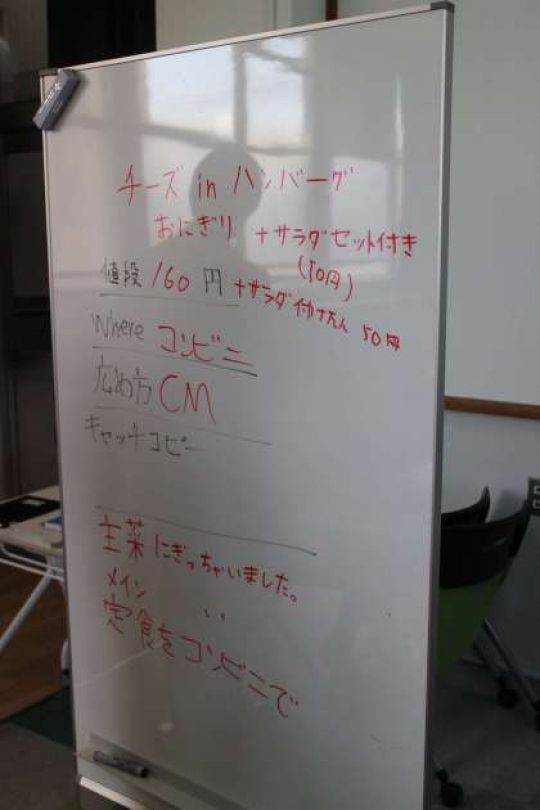 チーズ in ハンバーグ
おにぎり +サラダセット付き
(50円)
値段 160円 +サラダ 付けたん 50円
Where コンビニ
広め方 CM
キャッチコピー
主菜にぎっちゃいました。
メイン 〃
定食をコンビニで